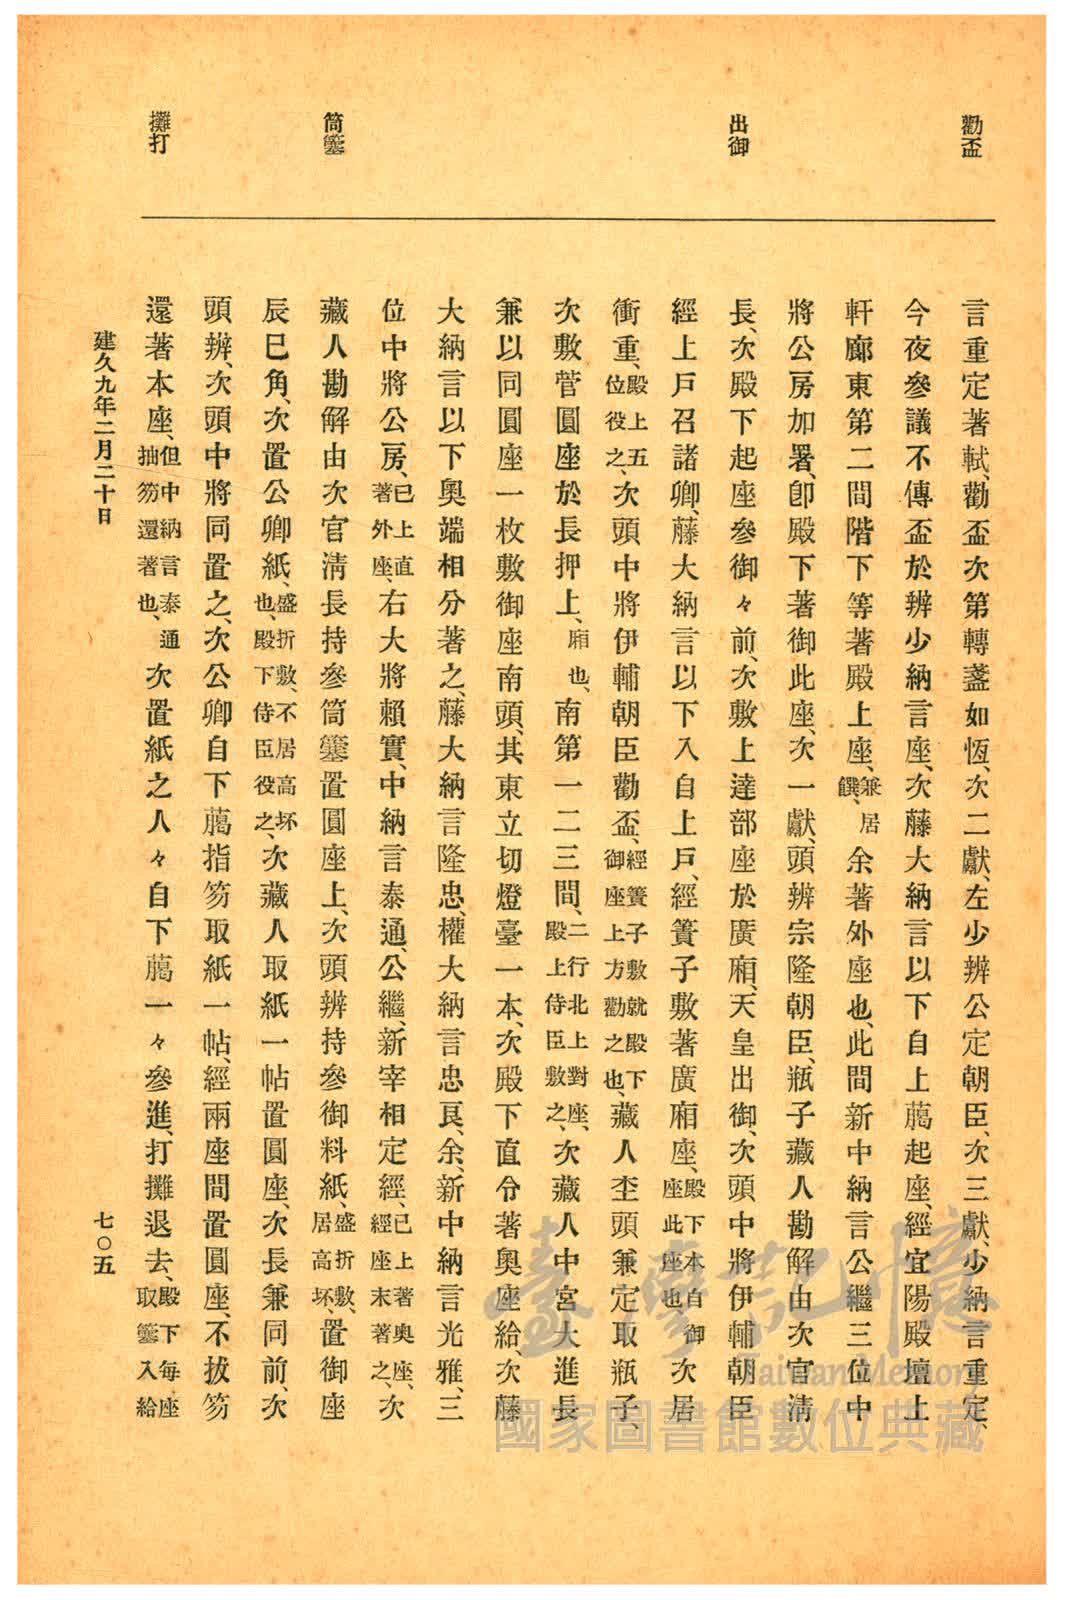 勸盃
出御
筒簺
攤打
言重定著軾、勸盃次第轉盞如恆、次二獻、左少辨公定朝臣、次三獻、少納言重定、
今夜參議不傳盃於辨少納言座、次藤大納言以下自上﨟起座、經宜陽殿壇上
軒廊東第二間階下等著殿上座、兼居饌、余著外座也、此間新中納言公繼三位中
將公房加署、卽殿下著御此座、次一獻、頭辨宗隆朝臣、瓶子藏人勘解由次官淸
長、次殿下起座參御々前、次敷上達部座於廣廂、天皇出御、次頭中將伊輔朝臣
經上戶召諸卿、藤大納言以下入自上戶、經簀子敷著廣廂座、殿下本自御座此座也、次居
衝重、殿上五位役之、次頭中將伊輔朝臣勸盃、經簀子敷就殿下御座上方勸之也、藏人坔頭兼定取瓶子、
次敷菅圓座於長押上、廂也、南第一二三間、二行北上對座、殿上侍臣敷之、次藏人中宮大進長
兼以同圓座一枚敷御座南頭、其東立切燈臺一本、次殿下直令著奧座給、次藤
大納言以下奧端相分著之、藤大納言隆忠、權大納言忠良、余、新中納言光雅、三
位中將公房、已上直著外座、右大將賴實、中納言泰通、公繼、新宰相定經、已上著奧座、經座末著之、次
藏人勘解由次官淸長持參筒簺置圓座上、次頭辨持參御料紙、盛折敷、居高坏、置御座
辰巳角、次置公卿紙、盛折敷、不居高坏也、殿下侍臣役之、次藏人取紙一帖置圓座、次長兼同前、次
頭辨、次頭中將同置之、次公卿自下﨟指笏取紙一帖、經兩座間置圓座、不拔笏
還著本座、但中納言泰通抽笏還著也、次置紙之人々自下﨟一々參進、打攤退去、殿下每座取簺入給
建久九年二月二十日
七〇五
臺灣記憶
Taiwan Memory
國家圖書館數位典藏